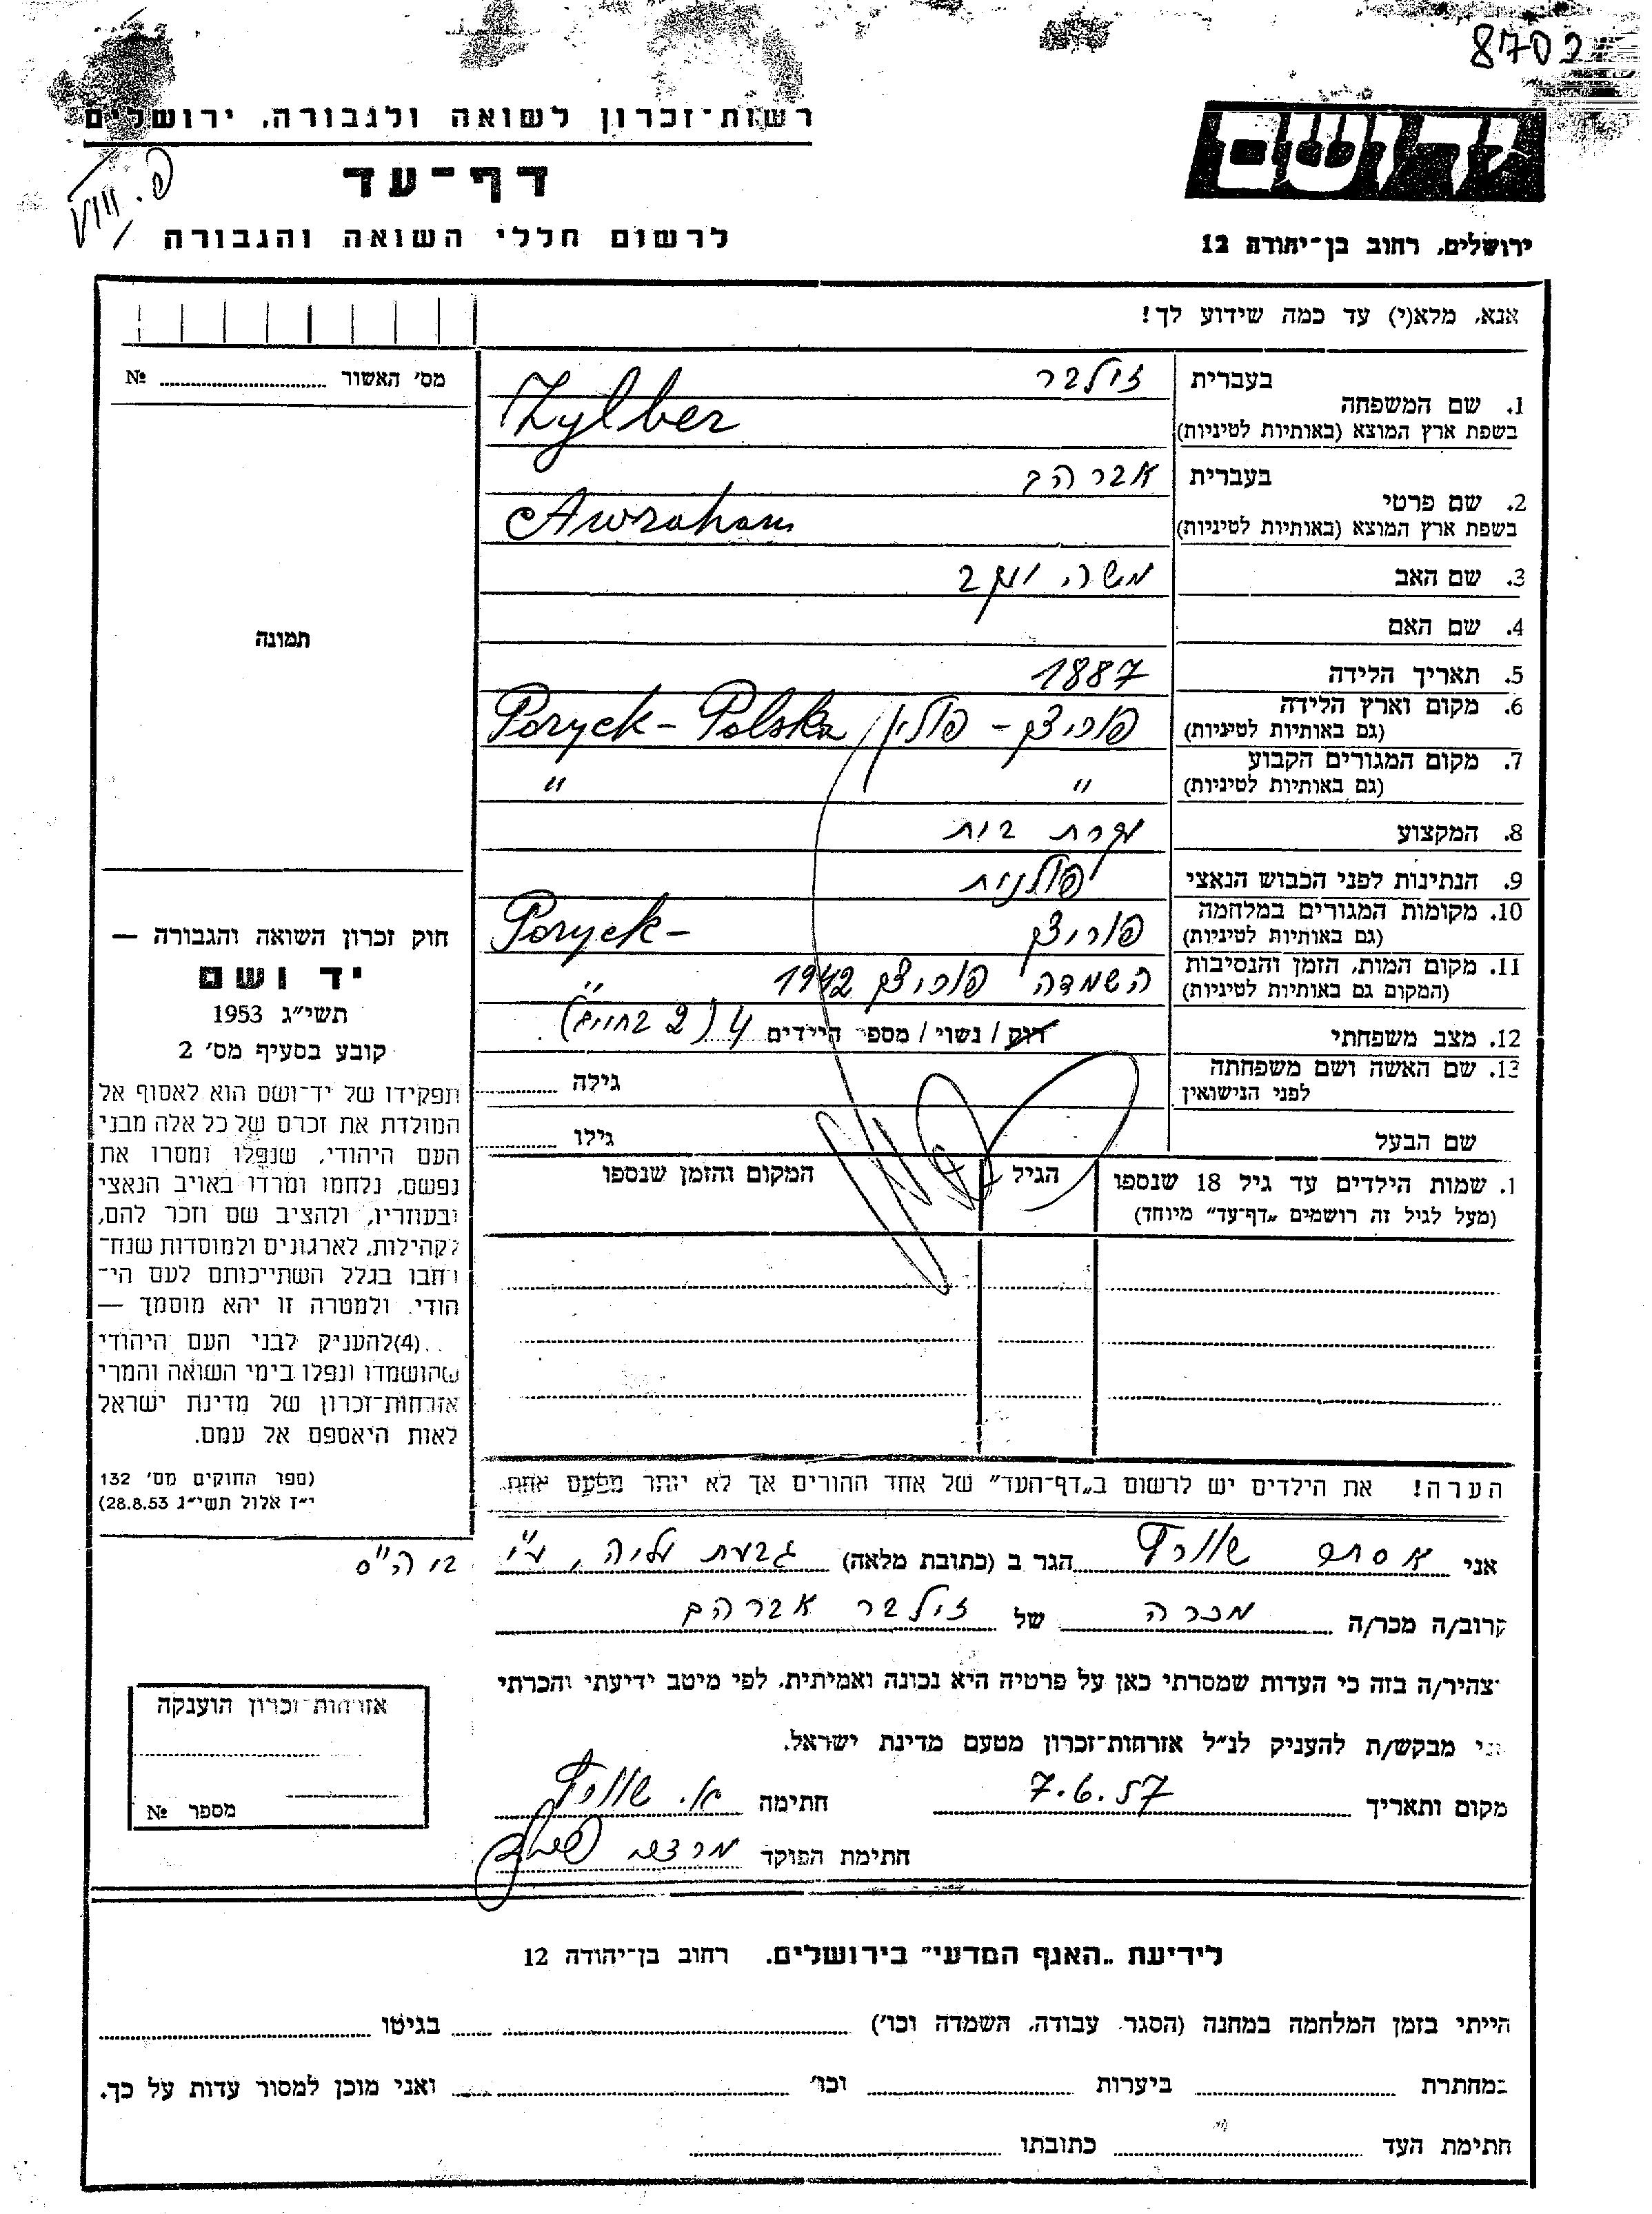 8702
רשות־זכרון לשואה ולגבורה, ירושלים
דף־עד
לרשום חללי השואה והגבורה
פ. VIII
יד ושם
ירושלים, רחוב בן־יהודה 12
אנא, מלא(י) עד כמה שידוע לך!
מס' האשור № ........
תמונה
1. שם המשפחה
בעברית זילבר
בשפת ארץ המוצא (באותיות לטיניות) Zylber
2. שם פרטי
בעברית אברהם
בשפת ארץ המוצא (באותיות לטיניות) Awraham
3. שם האב משה יעקב
4. שם האם
5. תאריך הלידה 1887
6. מקום וארץ הלידה (גם באותיות לטיניות) פוריצק - פולין / Poryck - Polska
7. מקום המגורים הקבוע (גם באותיות לטיניות) " "
8. המקצוע עקרת בית
9. הנתינות לפני הכבוש הנאצי פולנית
10. מקומות המגורים במלחמה (גם באותיות לטיניות) פוריצק Poryck -
11. מקום המות, הזמן והנסיבות (המקום גם באותיות לטיניות) השמדה פוריצק 1942 "
12. מצב משפחתי רוק / נשוי / מספר הילדים 4 (2 בחיים)
13. שם האשה ושם משפחתה לפני הנישואין גילה ........
שם הבעל גילו ........
1. שמות הילדים עד גיל 18 שנספו הגיל המקום והזמן שנספו
(מעל לגיל זה רושמים „דף־עד" מיוחד)
חוק זכרון השואה והגבורה —
יד ושם
תשי"ג 1953
קובע בסעיף מס' 2
תפקידו של יד־ושם הוא לאסוף אל
המולדת את זכרם של כל אלה מבני
העם היהודי, שנפלו ומסרו את
נפשם, נלחמו ומרדו באויב הנאצי
ובעוזריו, ולהציב שם וזכר להם,
לקהילות, לארגונים ולמוסדות שנח־
רבו בגלל השתייכותם לעם הי־
הודי. ולמטרה זו יהא מוסמך —
..(4)להעניק לבני העם היהודי
שהושמדו ונפלו בימי השואה והמרי
אזרחות־זכרון של מדינת ישראל
לאות היאספם אל עמם.
(ספר החוקים מס' 132
י"ז אלול תשי"ג 28.8.53)
הערה! את הילדים יש לרשום ב„דף־העד" של אחד ההורים אך לא יותר מפעם אחת.
אני אסתר שוורץ הגר ב (כתובת מלאה) גבעת עליה, ע"י
קרוב/ה מכר/ה מכרה של זילבר אברהם
מצהיר/ה בזה כי העדות שמסרתי כאן על פרטיה היא נכונה ואמיתית, לפי מיטב ידיעתי והכרתי
אני מבקש/ת להעניק לנ"ל אזרחות־זכרון מטעם מדינת ישראל.
מקום ותאריך 7.6.57 חתימה א. שוורץ
חתימת הפוקד
אזרחות־זכרון הוענקה
מספר №
לידיעת „האגף המדעי" בירושלים, רחוב בן־יהודה 12
הייתי בזמן המלחמה במחנה (הסגר, עבודה, השמדה וכו') ........ בגיטו ........
במחתרת ........ ביערות ........ וכו' ........ ואני מוכן למסור עדות על כך.
חתימת העד ........ כתובתו ........